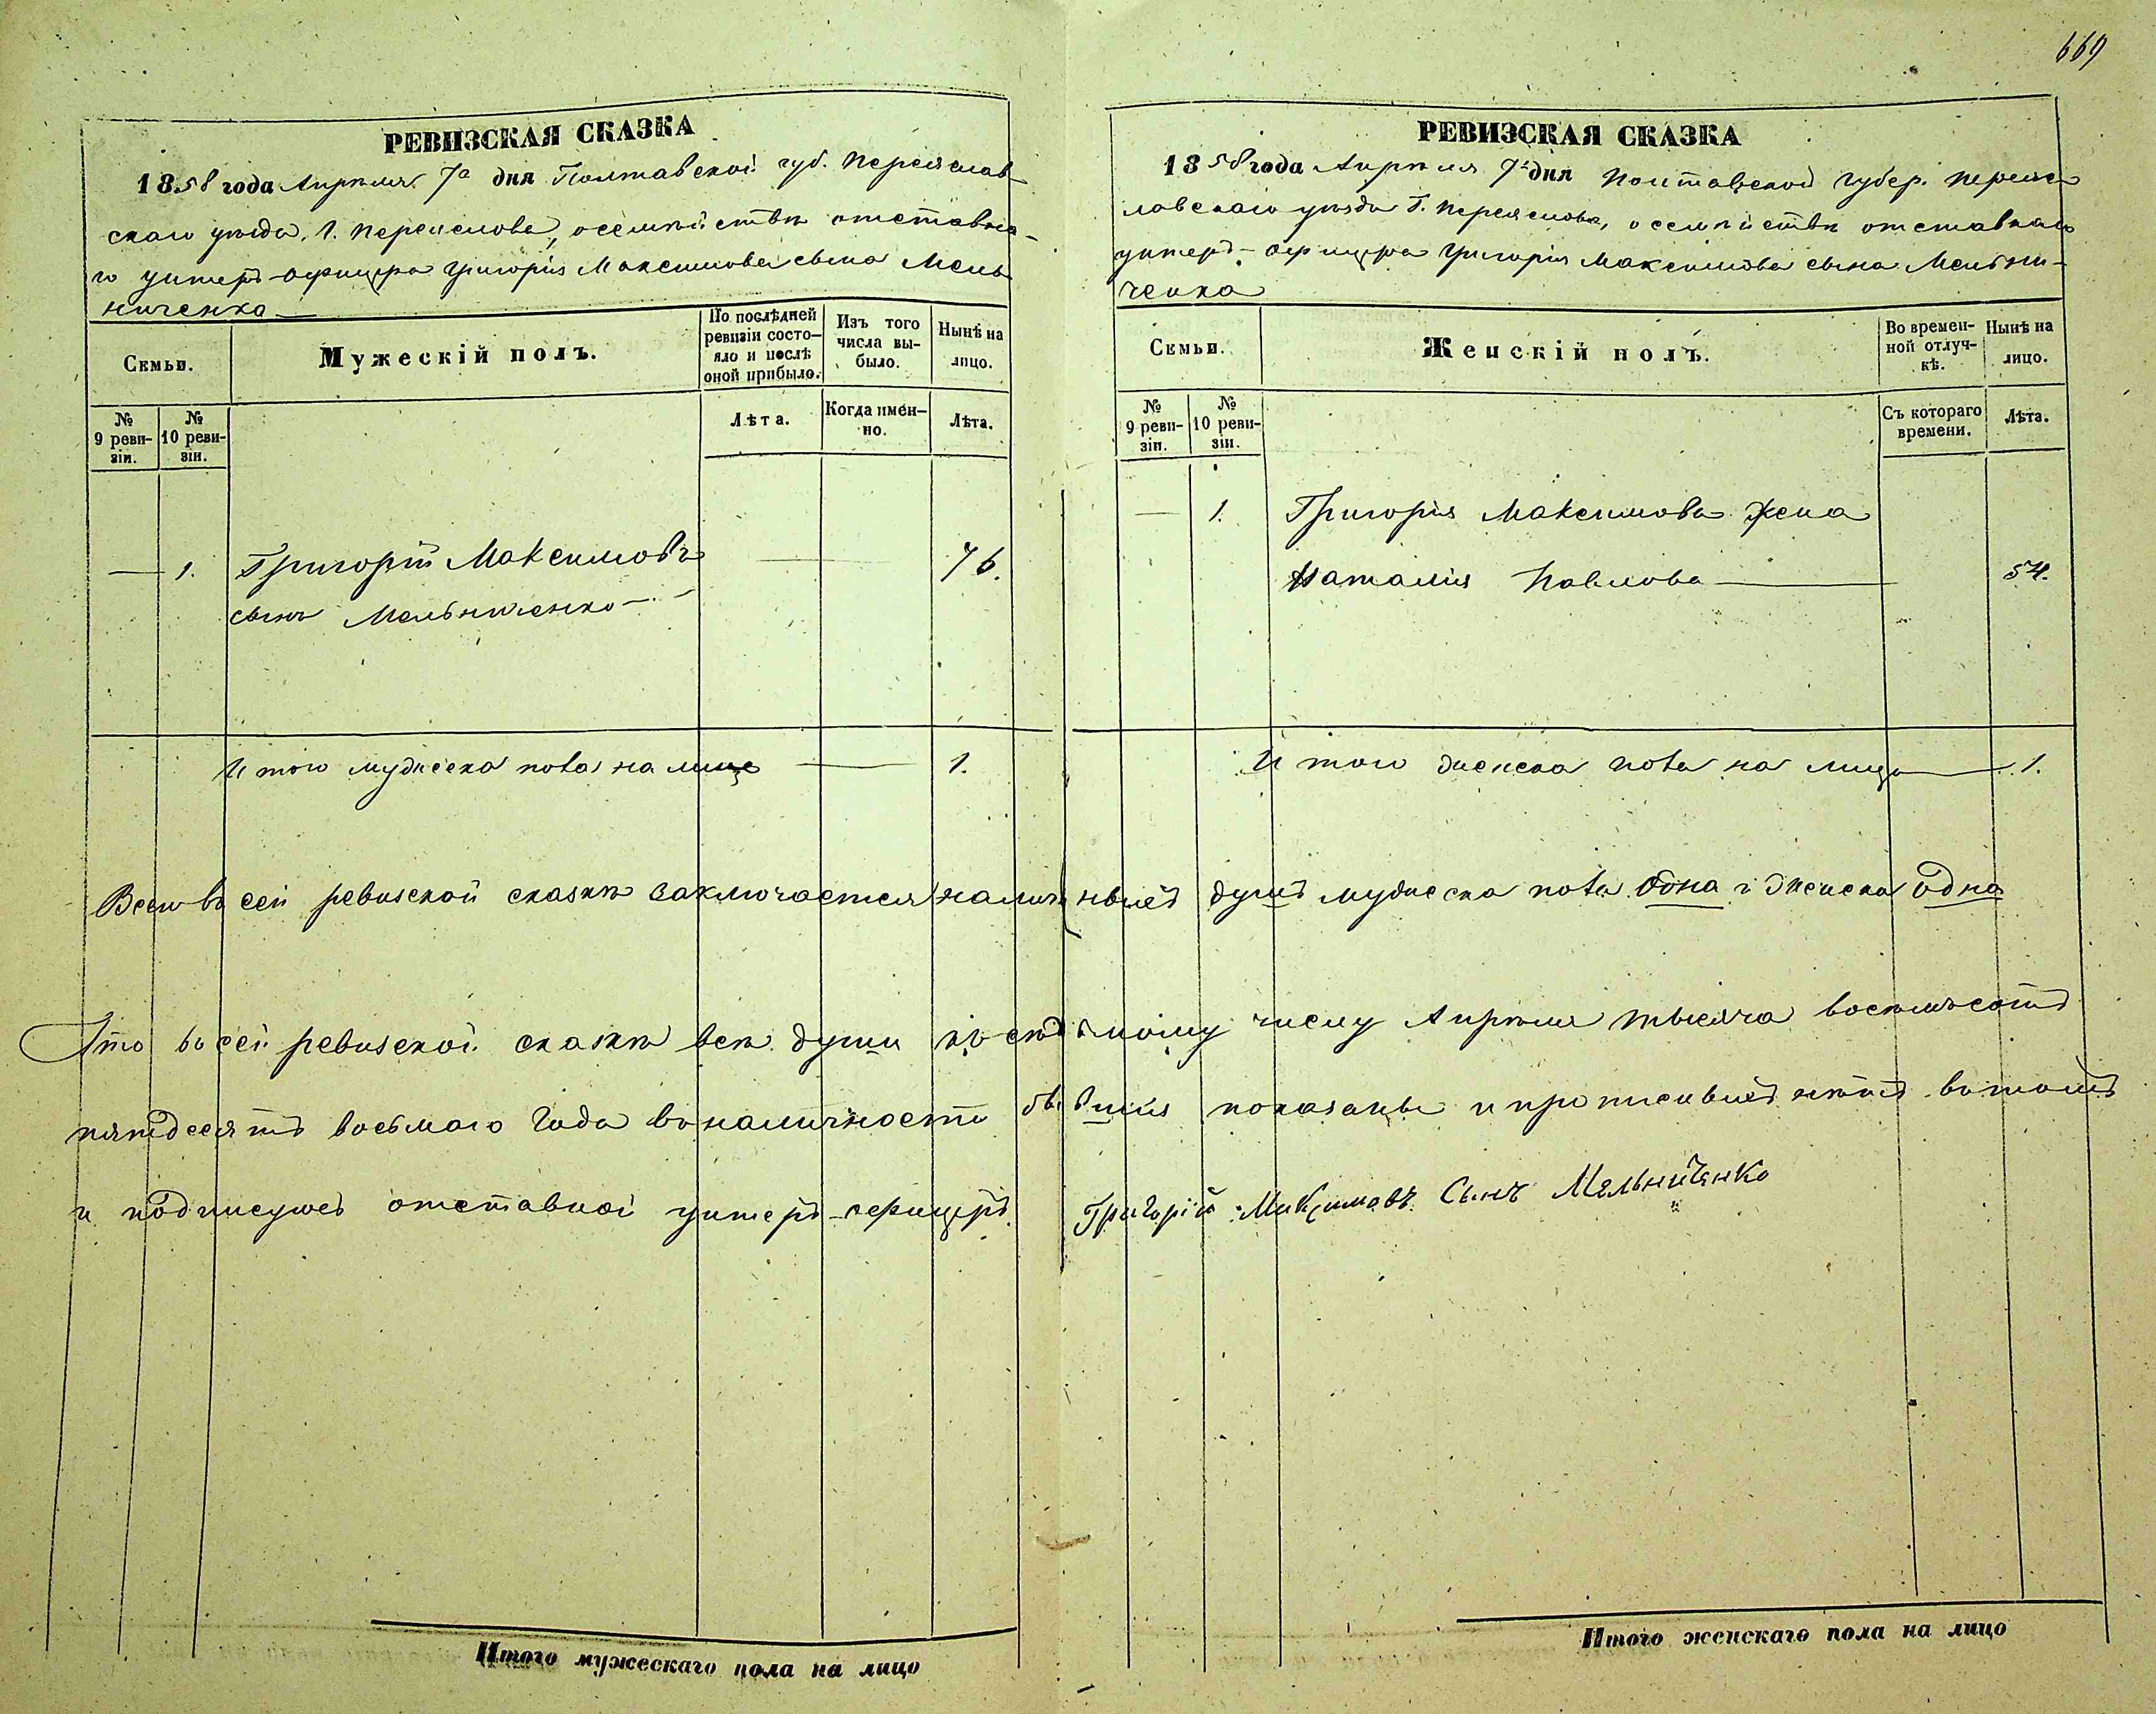 669
РЕВИЗСКАЯ СКАЗКА
1858 года Апреля 7го дня Полтавской губ. Переяслав-
скаго уезда, г. Переяслова, о семействе отставна-
го унтеръ-офицера Григорія Максимова сына Мель-
ниченка
Семьи.
Мужескій полъ.
По послѣдней ревизіи состо-яло и послѣ оной прибыло.
Изъ того числа вы-было.
Нынѣ на лицо.
№ 9 реви-зіи.
№ 10 реви-зіи.
Лѣта.
Когда имен-но.
Лѣта.
— 1. Григорій Максимовъ — 76.
сынъ Мельниченко
Итого мужеска пола на лице — 1.
РЕВИЗСКАЯ СКАЗКА
1858 года Апреля 7го дня Полтавской губер. Переяс-
лавскаго уезда г. Переяслова, о семействе отставнаго
унтеръ-офицера Григорія Максимова сына Мельни-
ченка
Семьи.
Женскій полъ.
Во времен-ной отлуч-кѣ.
Нынѣ на лицо.
№ 9 реви-зіи.
№ 10 реви-зіи.
Съ котораго времени.
Лѣта.
— 1. Григорія Максимова жена
Наталія Павлова — 54.
Итого женска пола на лицо — 1.
Всего въ сей ревизской сказке заключается наличныхъ душъ мужеска пола одна и женска одна
Что въ сей ревизской сказке все души къ седьмому числу Апреля тысяча восемьсотъ
пятдесятъ восьмаго года въ наличности бывшія показаны и прописныхъ нетъ въ томъ
и подписуюсь отставной унтеръ-офицеръ Григорій Максимовъ Сынъ Мельниченко
Итого мужескаго пола на лицо
Итого женскаго пола на лицо